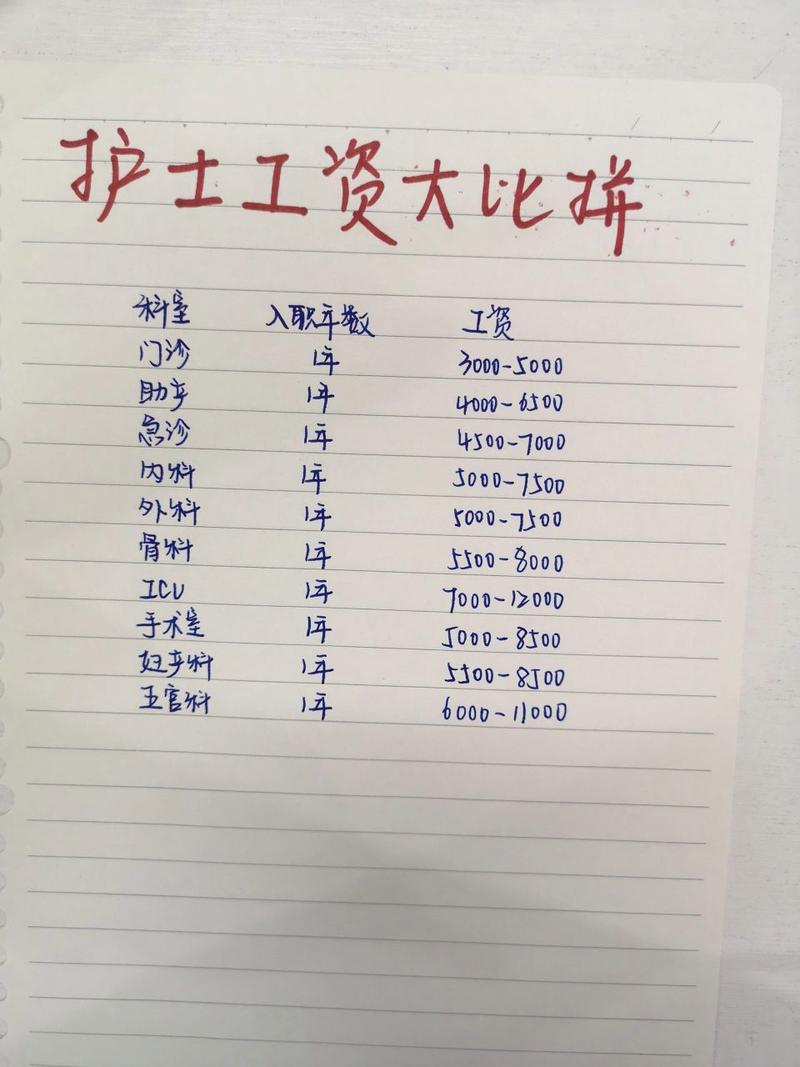 护士工资大比拼
科室 入职年数 工资
门诊 1年 3000-5000
助产 1年 4000-6500
急诊 1年 4500-7000
内科 1年 5000-7500
外科 1年 5000-7500
骨科 1年 5500-8000
ICU 1年 7000-12000
手术室 1年 5000-8500
妇产科 1年 5500-8500
五官科 1年 6000-11000